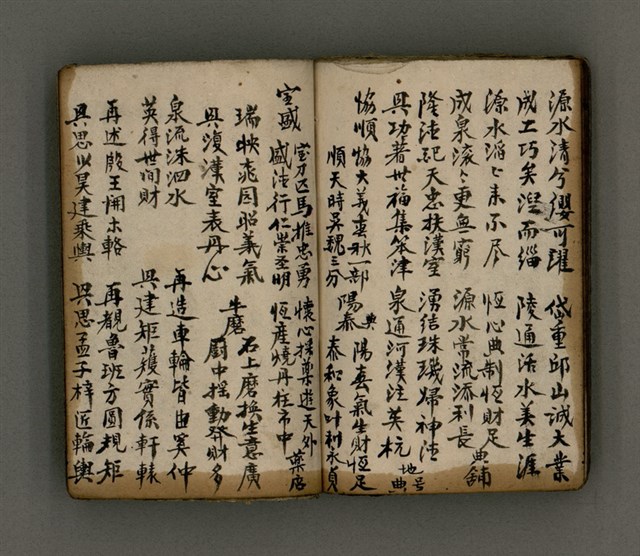 源水清兮纓可躍　岱重邱山誠大業
成工巧矣湼而緇　陵通活水美生涯
源水滔々來不尽　恆心典制恆財足
成泉滾々更無窮　源水常流添利長　典舖
隆法祀天忠扶漢室　湧結珠璣婦神法
興功著世福集笨津　泉通河漢注英杭　地号典
協順　協大義春秋一部　陽典泰　陽春氣生財恆足
順天時吳魏三分　泰和象叶利永貞
宝國　宝刀匹馬推忠勇　懷心採藥遊天外
盛法行仁崇圣明　恆産燒丹在市中　藥店
瑞映花园昭義氣　牛磨　石上磨换生意廣
興復漢室表丹心　廚中摇動發財多
泉流洙泗水　再造車輪皆由奚仲
英得世間財　興建矩矱實係軒轅
再述殷王開木輅　再覩魯班方圓規矩
興思少昊建乘輿　興思孟子梓匠輪輿